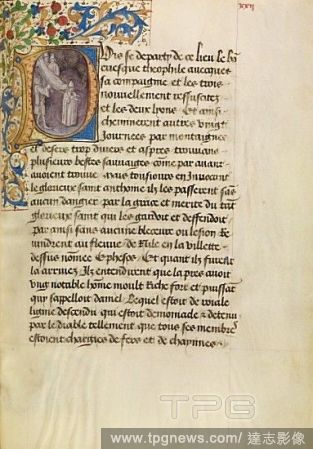 xxii
Puis se departy de ce lieu le bõ
euesque theophile auecques
sa compaignie et les trois
nouuellement ressuscitez
et les deux lyons Et ainsi
cheminerent autres vingt
Journees par montaignes
et desers trop diuers et aspres trouuans
plusieurs bestes sauuaiges cõme par auant
auoient trouue Mais tousiours en Inuocant
le glorieux saint anthoine ilz les passerent sãs
aucun dangier par la grace et merite du trẽs
glorieux saint qui les gardoit et deffendoit
par ainsi sans aucune bleceure ou lesion Re
uindrent au fleuue de Nile en la villette
dessus nõmee Epheses Et quant ilz furẽt
la arriuez Ilz entendirent que la pres auoit
vng notable hõme moult Riche fort et puissãt
quy sappelloit daniel Lequel estoit de roiale
ligne descendu qui estoit demoniacle z detenu
par le diable tellement que tous ses membres
estoient chargies de fers et de chaynnes
TPG
www.tpgnews.com/達志影像